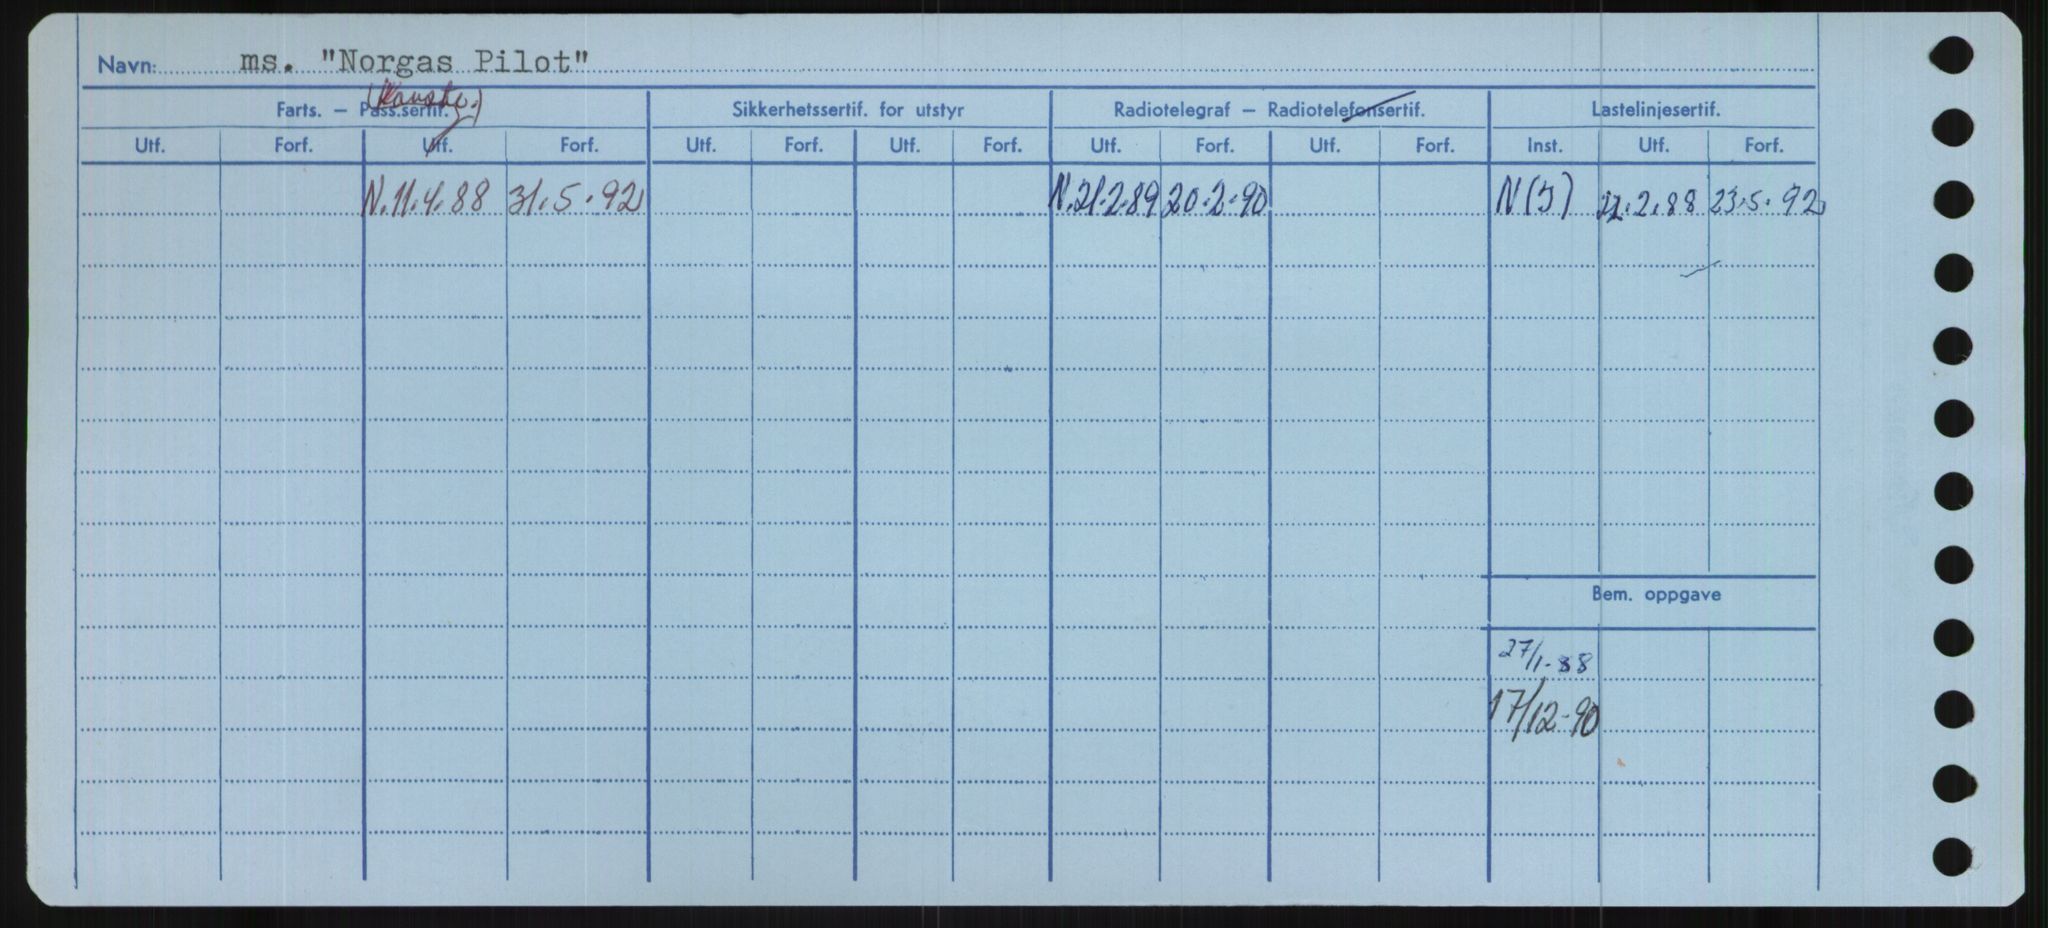 Navn: ms. "Norgas Pilot"
(Konstr.)
Farts. — Pass.sertif. Sikkerhetssertif. for utstyr Radiotelegraf — Radiotelefonsertif. Lastelinjesertif.
Utf. Forf. Utf. Forf. Utf. Forf. Utf. Forf. Utf. Forf. Utf. Forf. Inst. Utf. Forf.
N.11.4.88 31.5.92 N.21.2.89 20.2.90 N(J) 22.2.88 23.5.92
Bem. oppgave
27/1-88
17/12-90